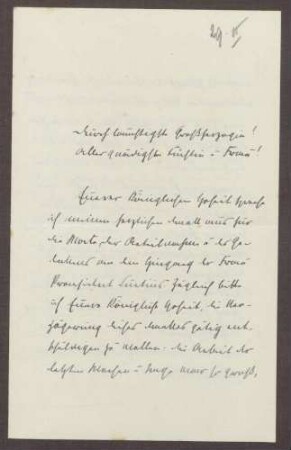 29. II
Durchlauchtigste Großherzogin!
Allergnädigste Fürstin u. Frau!
Euerer Königlichen Hoheit spreche
ich meinen herzlichen Dank aus für
die Worte der Teilnahme u. des Ge-
denkens an den Heimgang der Frau
Zugleich bitte
ich Euere Königliche Hoheit, die Ver-
zögerung dieses Dankes gütig ent-
schuldigen zu wollen: die Arbeit der
letzten Wochen u. Tage war so groß,